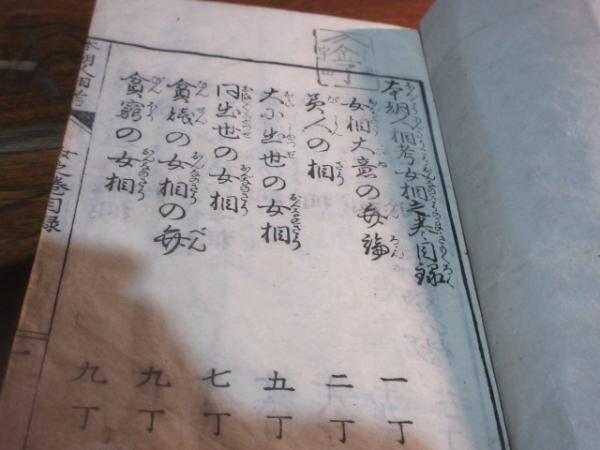 本朝人相考女相之巻目録
女相大意の弁論 一丁
貴人の相 二丁
大小出世の女相 五丁
同出世の女相 七丁
貧賤の女相の弁 九丁
貧窮の女相 九丁
本朝人相考 女之巻目録 一